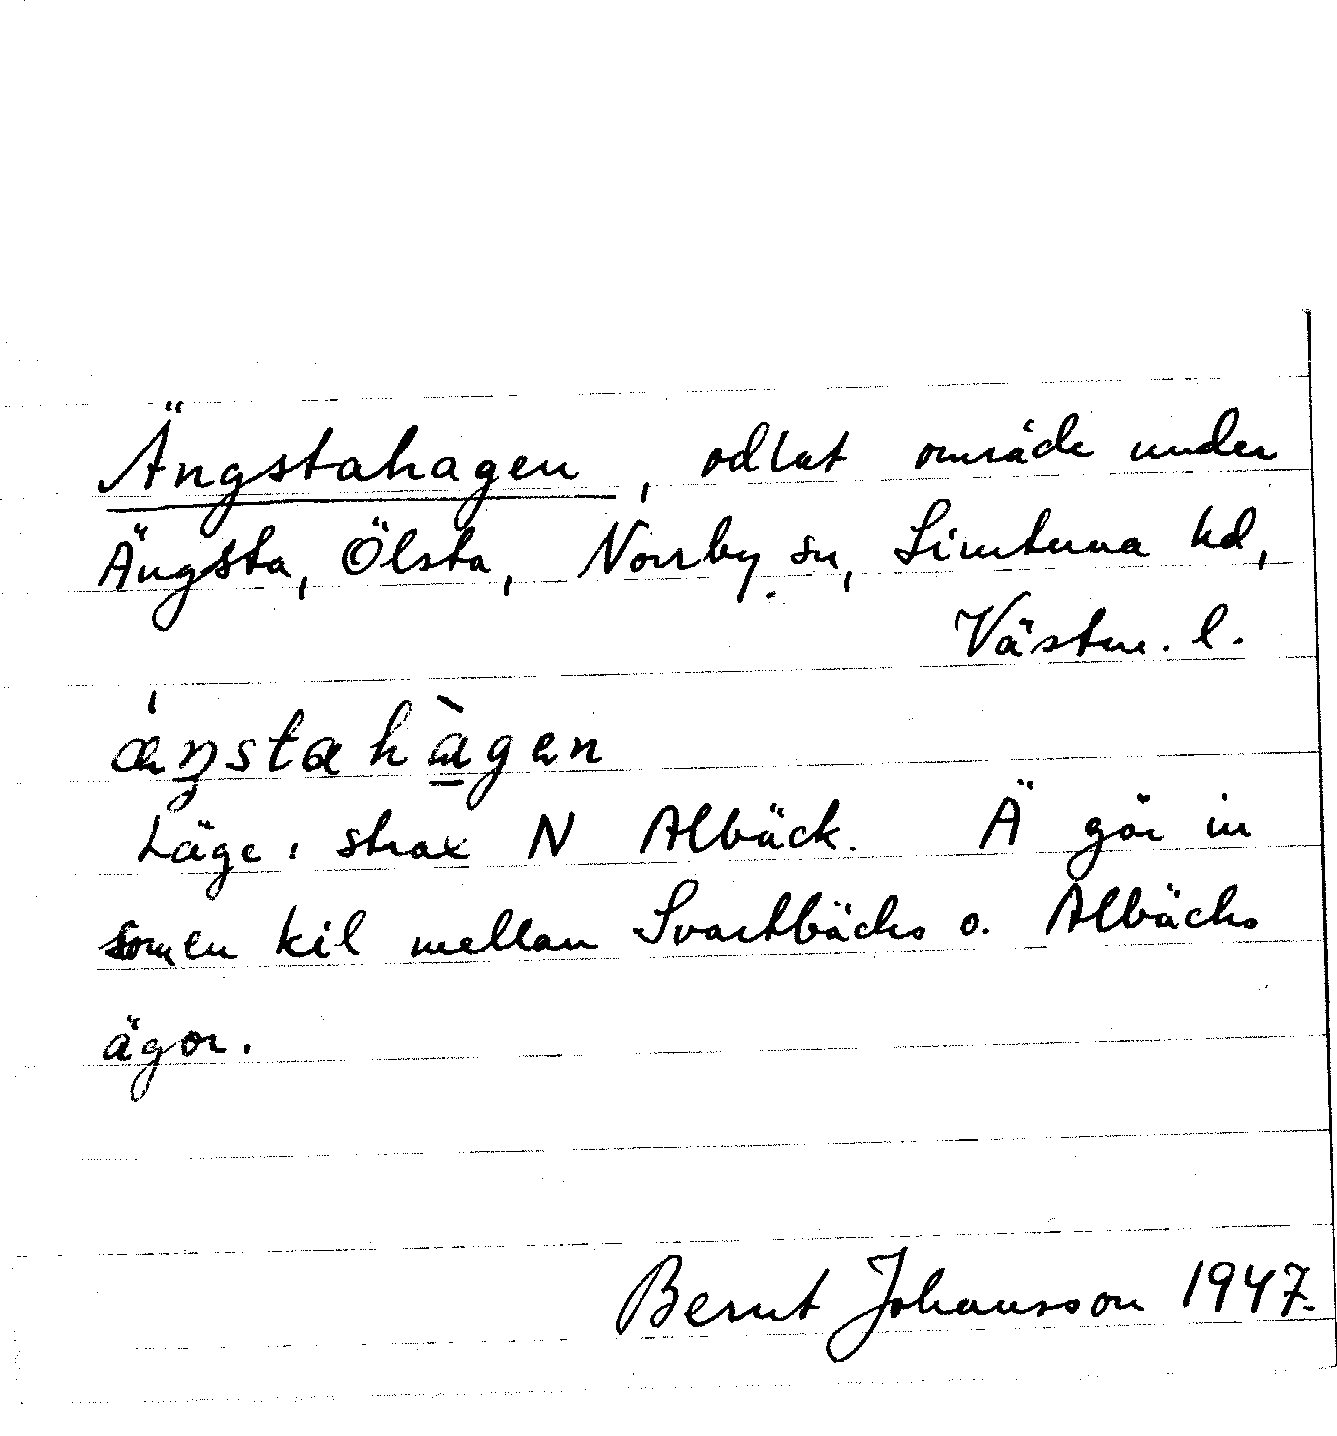 Ängstahagen, odlat område under
Ängsta, Ölsta, Norrby sn, Simtuna hd,
Västm. l.
ä́ŋstahàgen
Läge: strax N Albäck. Ä går in
som en kil mellan Svartbäcks o. Albäcks
ägor.
Bernt Johansson 1947.